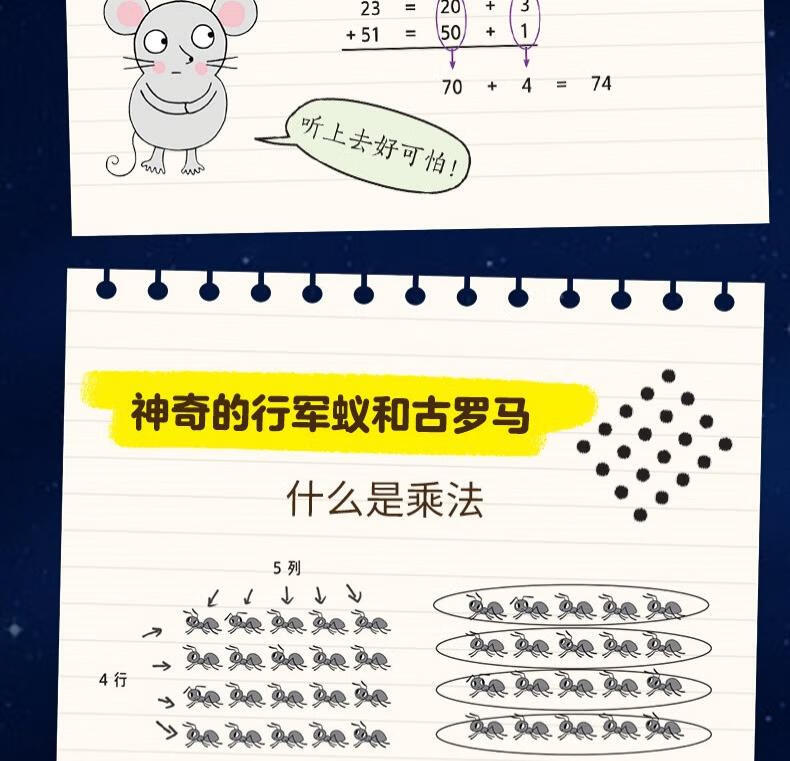 23 = 20 + 3
+ 51 = 50 + 1
70 + 4 = 74
听上去好可怕!
神奇的行军蚁和古罗马
什么是乘法
5 列
4 行